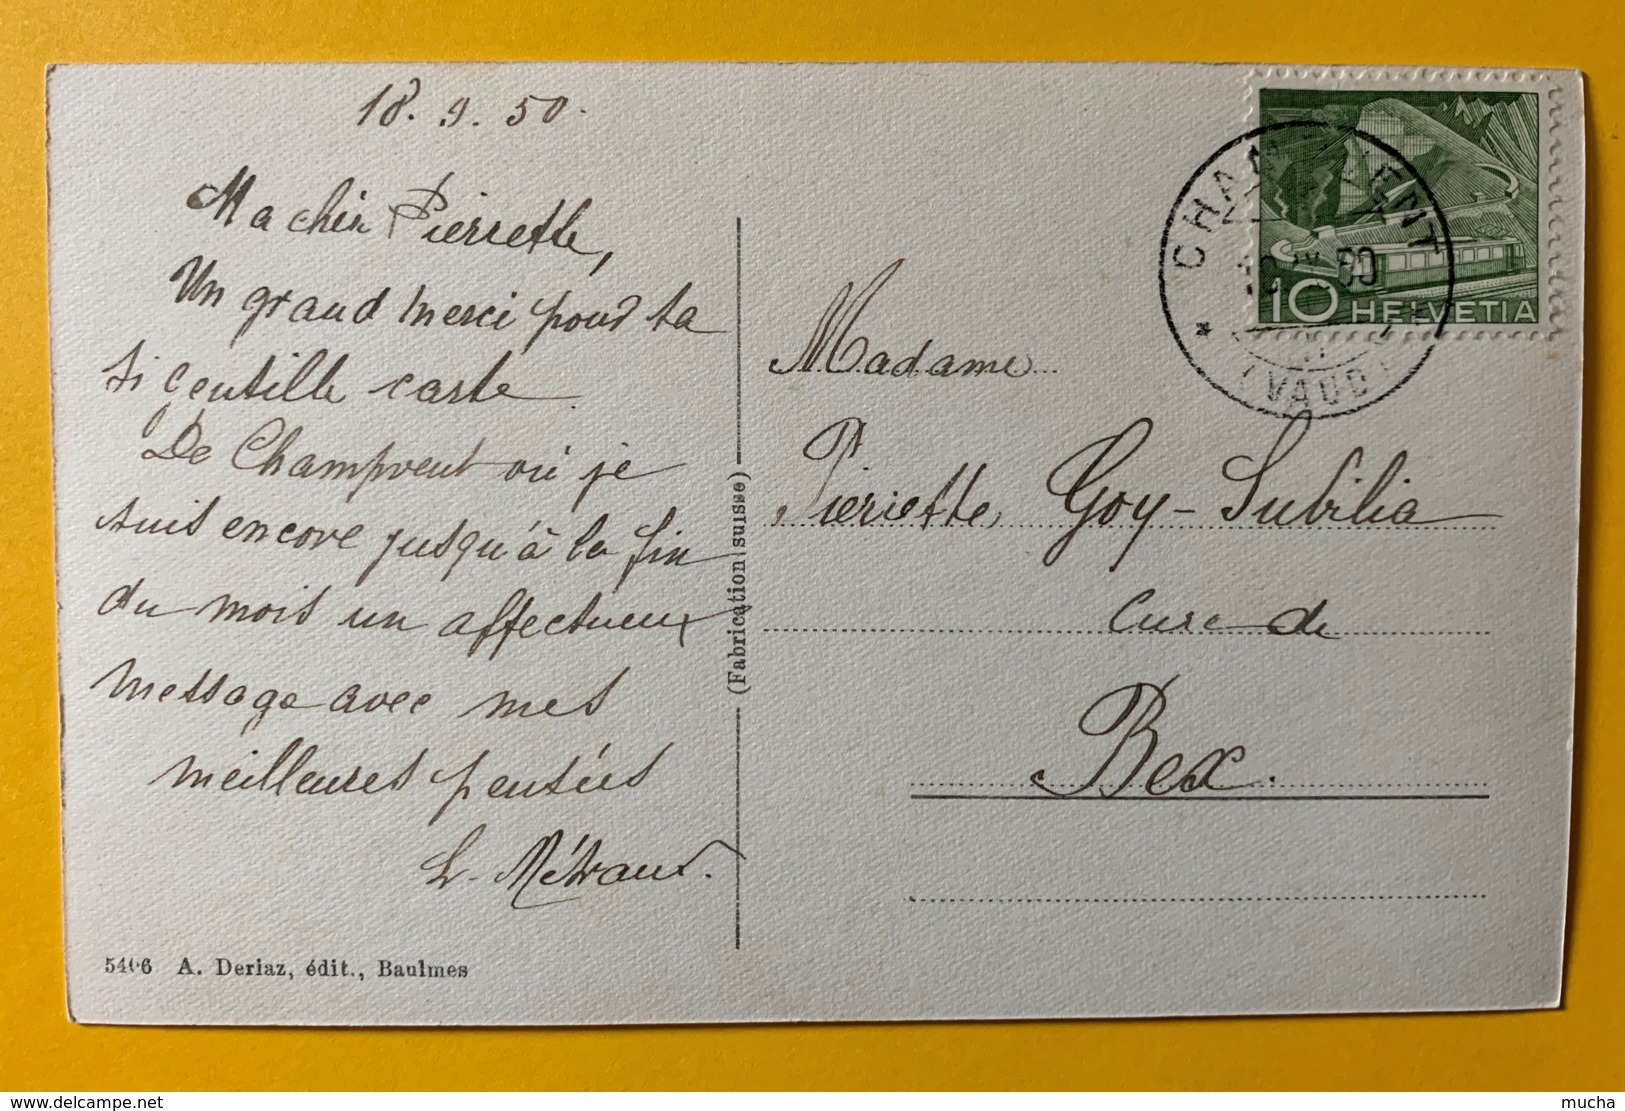 18. 9. 50.
Ma chère Pierrette,
Un grand merci pour ta
si gentille carte.
De Champvent où je
suis encore jusqu'à la fin
du mois un affectueux
message avec mes
meilleures pensées
L. Métraux.
5406 A. Deriaz, édit., Baulmes
(Fabrication suisse)
CHAMPVENT
(VAUD)
10 HELVETIA
Madame
Pierrette Goy-Subilia
Cure de
Bex.
www.delcampe.net
mucha